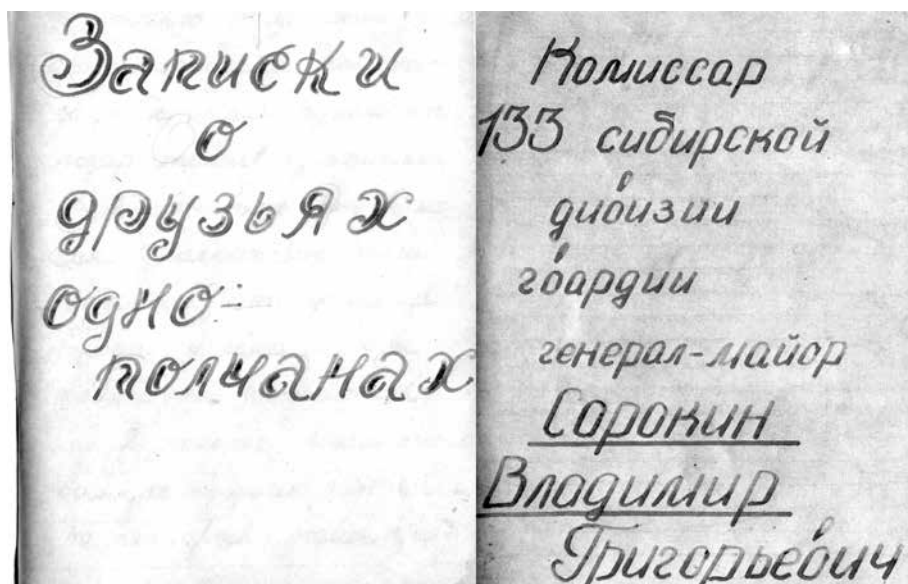 Записки
о
друзьях
одно-
полчанах
Комиссар
133 сибирской
дивизии
гвардии
генерал-майор
Сорокин
Владимир
Григорьевич